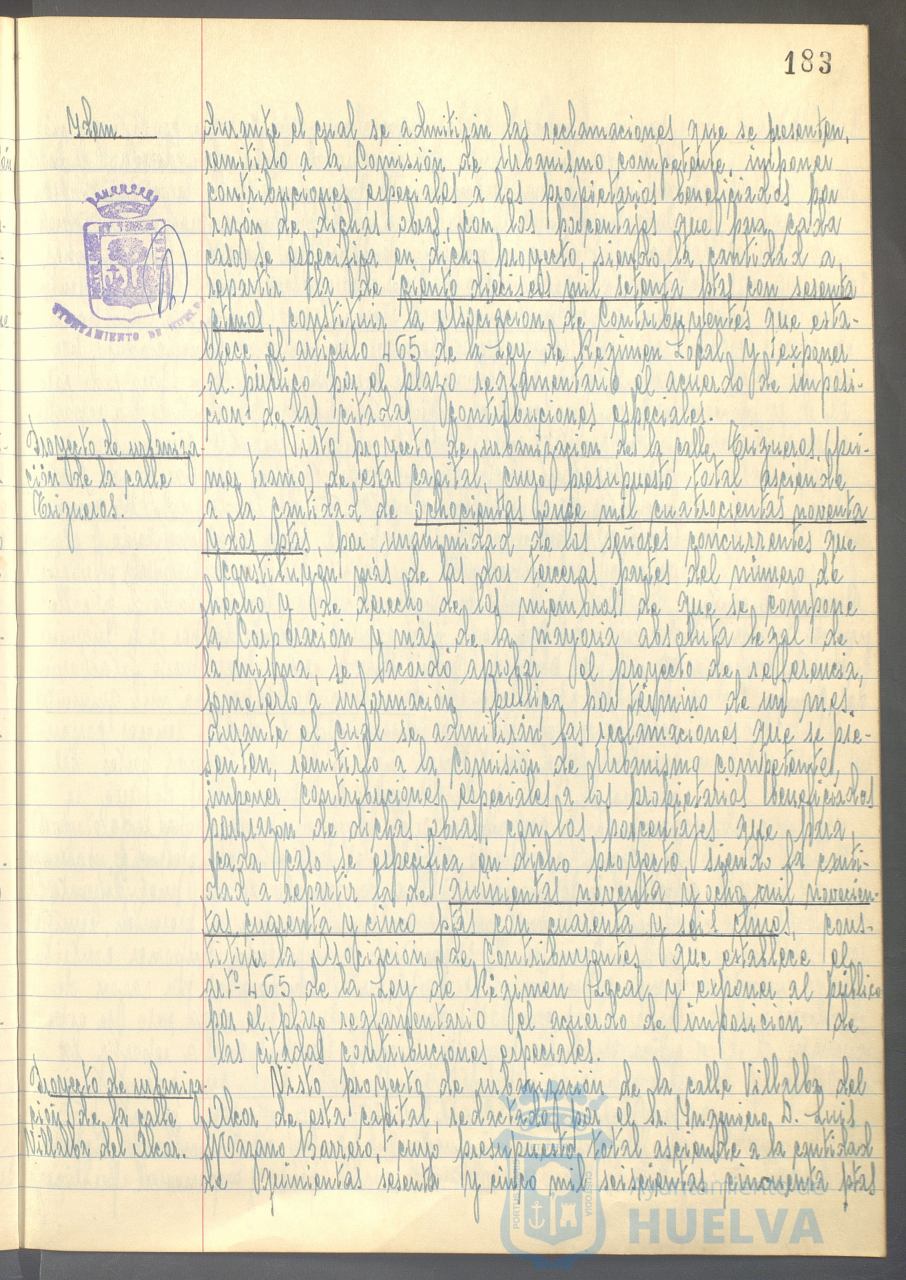 183
Idem.
durante el cual se admitirán las reclamaciones que se presenten,
remitirlo a la Comisión de Urbanismo competente, imponer
contribuciones especiales a los propietarios beneficiados por
razón de dichas obras, con los porcentajes que para cada
caso se especifica en dicho proyecto, siendo la cantidad a
repartir la de ciento dieciseis mil setenta ptas con sesenta
ctmos, constituir la Asociación de Contribuyentes que esta-
blece el artículo 465 de la Ley de Régimen Local y exponer
al público por el plazo reglamentario el acuerdo de imposi-
ción de las citadas contribuciones especiales.
AYUNTAMIENTO DE HUELVA
Proyecto de urbaniza
ción de la calle
Trigueros.
Visto proyecto de urbanización de la calle Trigueros (pri-
mer tramo) de esta capital, cuyo presupuesto total asciende
a la cantidad de ochocientas once mil cuatrocientas noventa
y dos ptas, por unanimidad de los señores concurrentes que
constituyen más de las dos terceras partes del número de
hecho y de derecho de los miembros de que se compone
la Corporación y más de la mayoría absoluta legal de
la misma, se acordó aprobar el proyecto de referencia,
someterlo a información pública por término de un mes
durante el cual se admitirán las reclamaciones que se pre-
senten, remitirlo a la Comisión de Urbanismo competente,
imponer contribuciones especiales a los propietarios beneficiados
por razón de dichas obras, con los porcentajes que para
cada caso se especifica en dicho proyecto, siendo la canti-
dad a repartir la de quinientas noventa y ocho mil novecien-
tas cuarenta y cinco ptas con cuarenta y seis ctmos, cons-
tituir la Asociación de Contribuyentes que establece el
artº 465 de la Ley de Régimen Local y exponer al público
por el plazo reglamentario el acuerdo de imposición de
las citadas contribuciones especiales.
Proyecto de urbaniza-
ción de la calle
Villalba del Alcor.
Visto proyecto de urbanización de la calle Villalba del
Alcor de esta capital, redactado por el Sr. Ingeniero D. Luis
Marano Barrero, cuyo presupuesto total asciende a la cantidad
de quinientas sesenta y cinco mil seiscientas cincuenta ptas
Ayuntamiento de
HUELVA